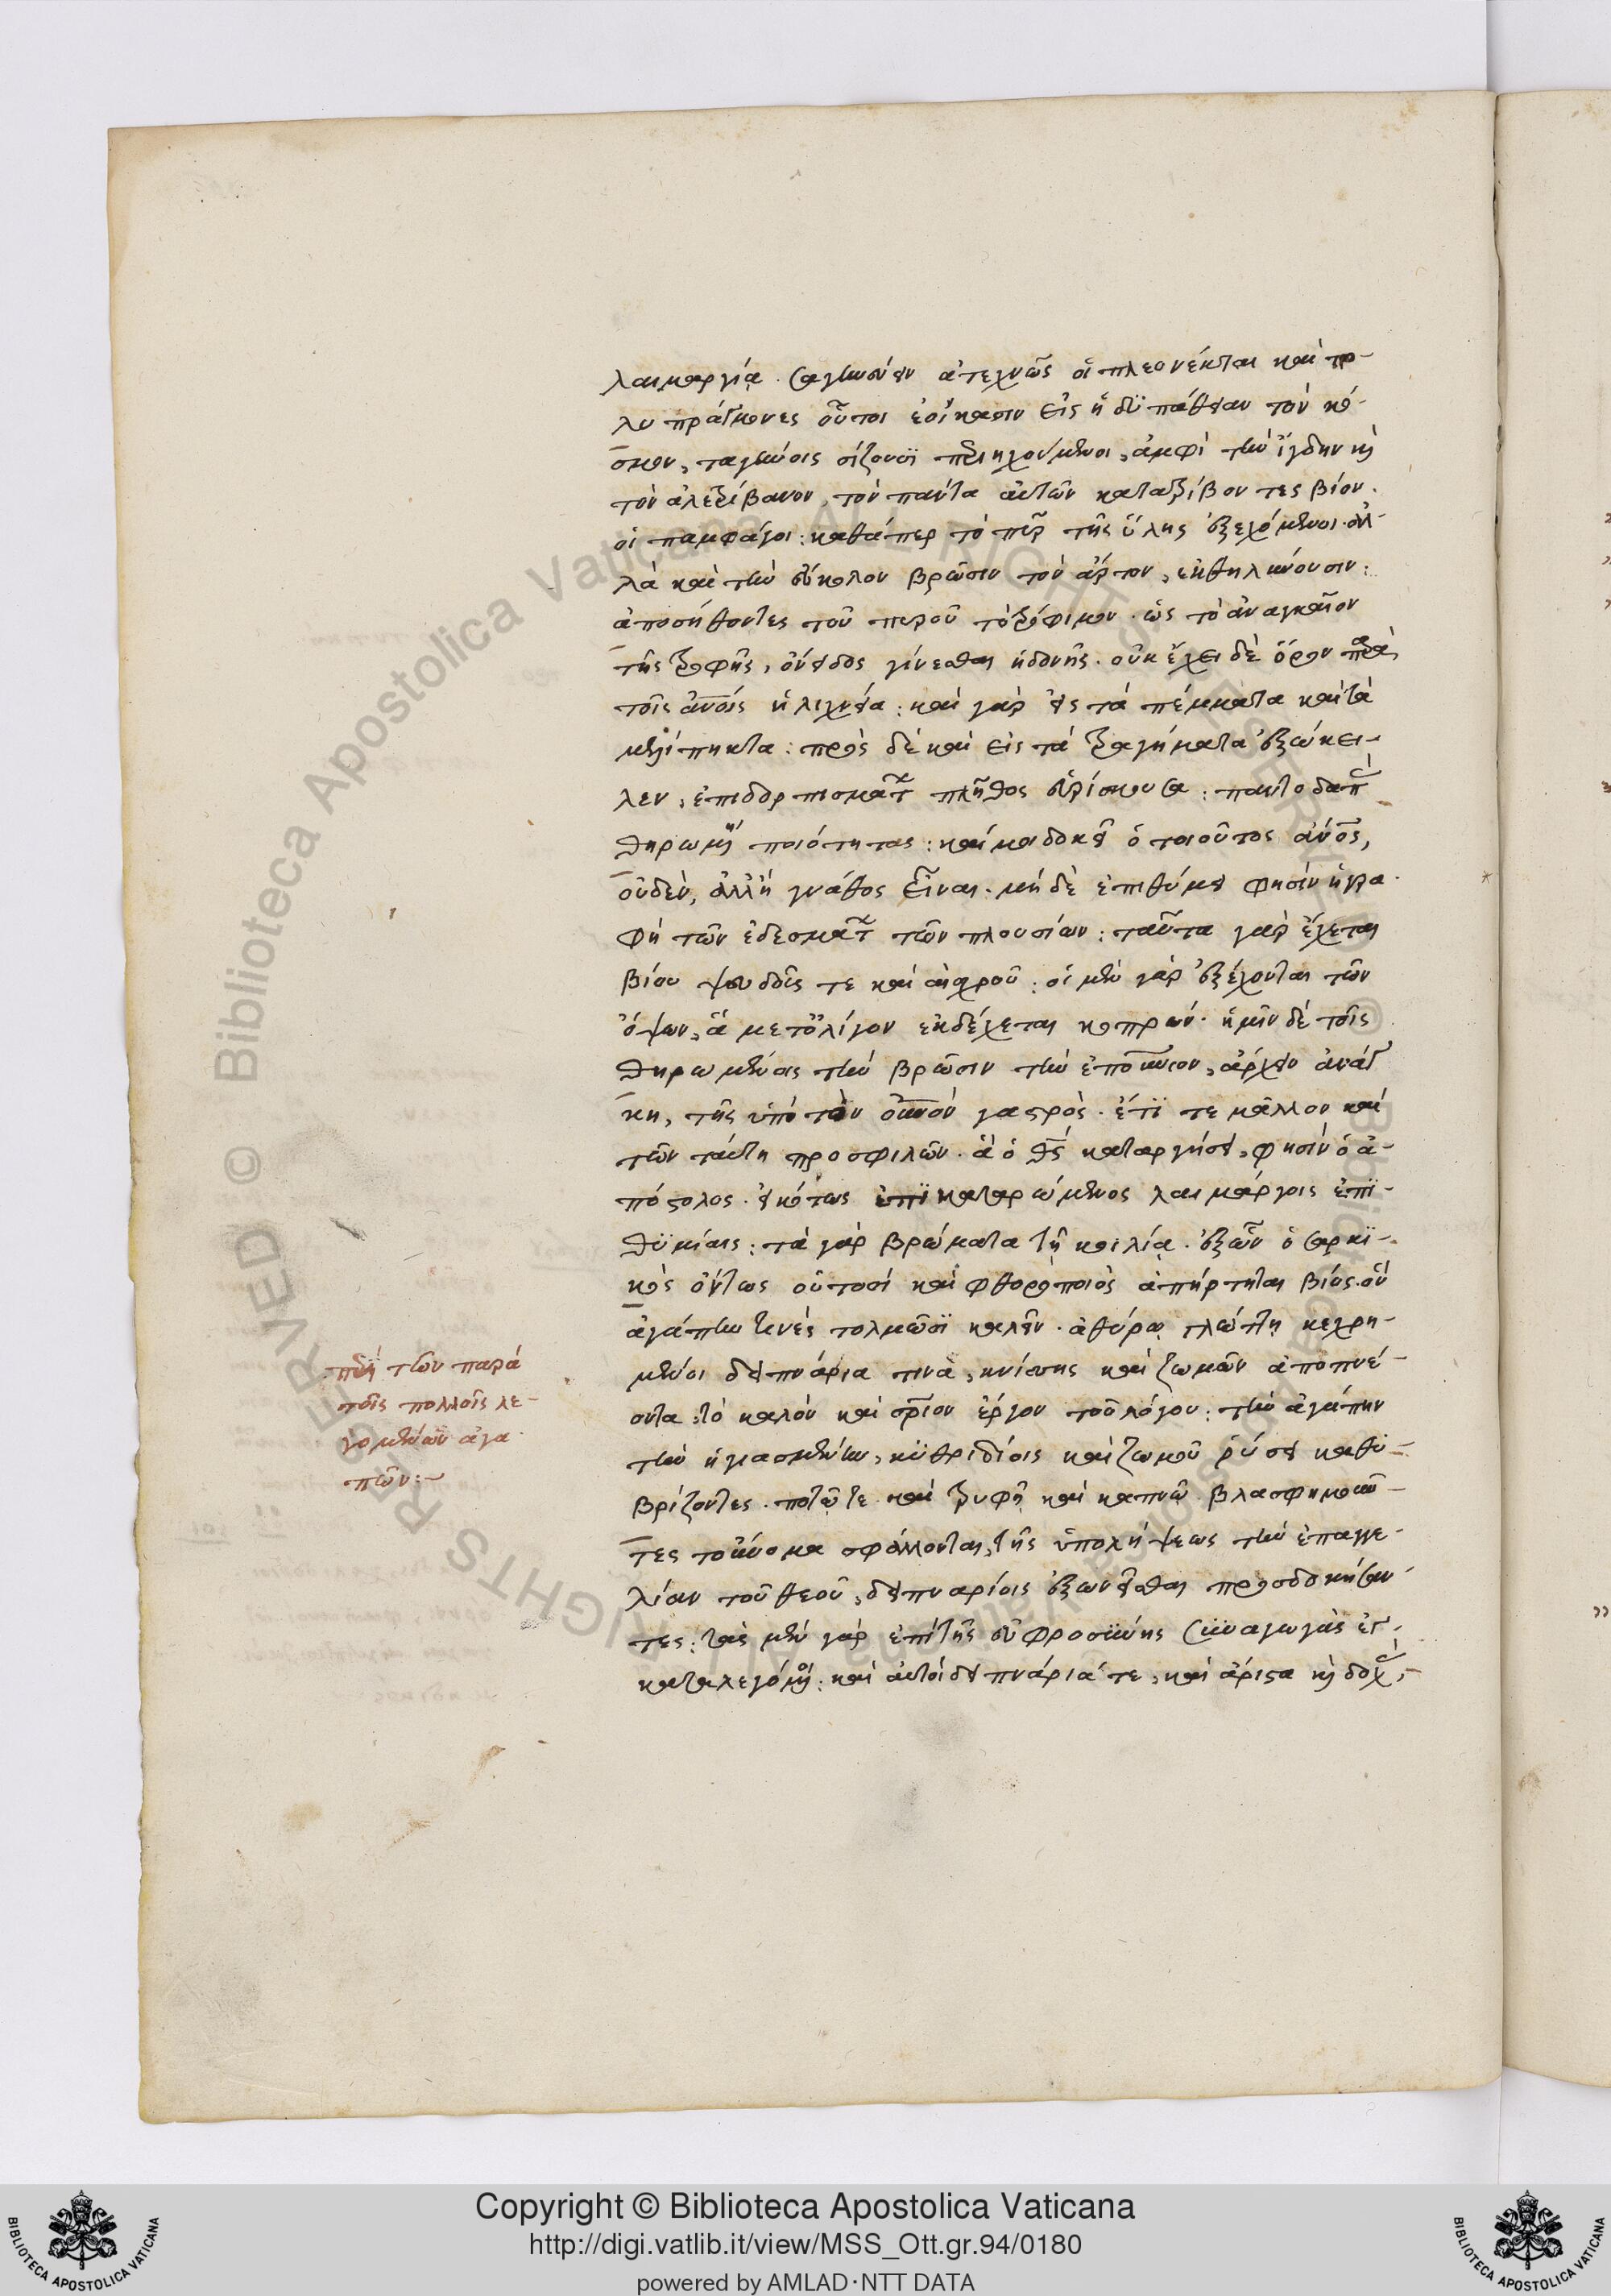 λαιμαργία. σαγηνεύειν ἀτεχνῶς οἱ πλεονέκται καὶ πο-
λυπράγμονες οὗτοι ἐοίκασιν εἰς ἡδυπάθειαν τὸν κό-
σμον, ταγήνοις σίζουσι περιηχούμενοι, ἀμφὶ τὴν ἴγδην καὶ
τὸν ἀλετρίβανον, τὸν πάντα αὐτῶν κατατρίβοντες βίον.
οἱ παμφάγοι: καθάπερ τὸ πῦρ τῆς ὕλης ἐξεχόμενοι. ἀλ-
λὰ καὶ τὴν εὔκολον βρῶσιν τὸν ἄρτον, ἐκθηλύνουσιν:
ἀποσήθοντες τοῦ πυροῦ τὸ τρόφιμον. ὡς τὸ ἀναγκαῖον
τῆς τροφῆς, ὄνειδος γίνεσθαι ἡδονῆς. οὐκ ἔχει δὲ ὅρον παρὰ
τοῖς ἀνοις ἡ λιχνεία: καὶ γὰρ εἰς τὰ πέμματα καὶ τὰ
μελίπηκτα: πρὸς δὲ καὶ εἰς τὰ τραγήματα ἐξώκει-
λεν, ἐπιδορπισμάτων πλῆθος εὑρίσκουσα: παντοδαπὰς
θηρωμένη ποιότητας: καί μοι δοκεῖ ὁ τοιοῦτος ἀνος,
οὐδὲν, ἀλλ' ἢ γνάθος εἶναι. μὴ δὲ ἐπιθύμει φησὶν ἡ γρα-
φὴ τῶν ἐδεσμάτων τῶν πλουσίων: ταῦτα γὰρ ἔχεται
βίου ψευδοῦς τε καὶ αἰσχροῦ: οἱ μὲν γὰρ ἐξέχονται τῶν
ὄψων, ἃ μετ' ὀλίγον ἐκδέχεται κοπρών. ἡμῖν δὲ τοῖς
θηρωμένοις τὴν βρῶσιν τὴν ἐπουνιον, ἄρχειν ἀνάγ-
κη, τῆς ὑπὸ τὸν οὐνον γαστρὸς. ἔτι τε μᾶλλον καὶ
τῶν ταύτη προσφιλῶν. ἃ ὁ θς καταργήσει, φησὶν ὁ ἀ-
πόστολος. εἰκότως ἐπικαταρώμενος λαιμάργοις ἐπι-
θυμίαις: τὰ γὰρ βρώματα τῇ κοιλίᾳ. ἐξ ὧν ὁ σαρκι-
κὸς ὄντως οὑτοσὶ καὶ φθοροποιὸς ἀπήρτηται βίος. ὃν
ἀγάπην τινὲς τολμῶσι καλεῖν. ἀθύρῳ γλώττῃ κεχρη-
μένοι δειπνάρια τινὰ, κνίσης καὶ ζωμῶν ἀποπνέ-
οντα: τὸ καλὸν καὶ σριον ἔργον τοῦ λόγου: τὴν ἀγάπην
τὴν ἡγιασμένην, κυθριδίοις καὶ ζωμοῦ ῥύσει καθυ-
βρίζοντες. ποτῷ τε καὶ τρυφῇ καὶ καπνῷ βλασφημοῦν-
τες τοὔνομα σφάλλονται, τῆς ὑπολήψεως τὴν ἐπαγγε-
λίαν τοῦ θεοῦ, δειπναρίοις ἐξωνεῖσθαι προσδοκήσαν-
τες: τὰς μὲν γὰρ ἐπὶ τῆς εὐφροσύνης συναγωγὰς ἐγ-
καταλεγόμενοι: καὶ αὐτοὶ δειπνάριά τε, καὶ ἄριστα καὶ δοχὰς,
περὶ τῶν παρὰ
τοῖς πολλοῖς λε-
γομένων ἀγα-
πῶν:
Copyright © Biblioteca Apostolica Vaticana
http://digi.vatlib.it/view/MSS_Ott.gr.94/0180
powered by AMLAD·NTT DATA
BIBLIOTECA APOSTOLICA VATICANA
BIBLIOTECA APOSTOLICA VATICANA